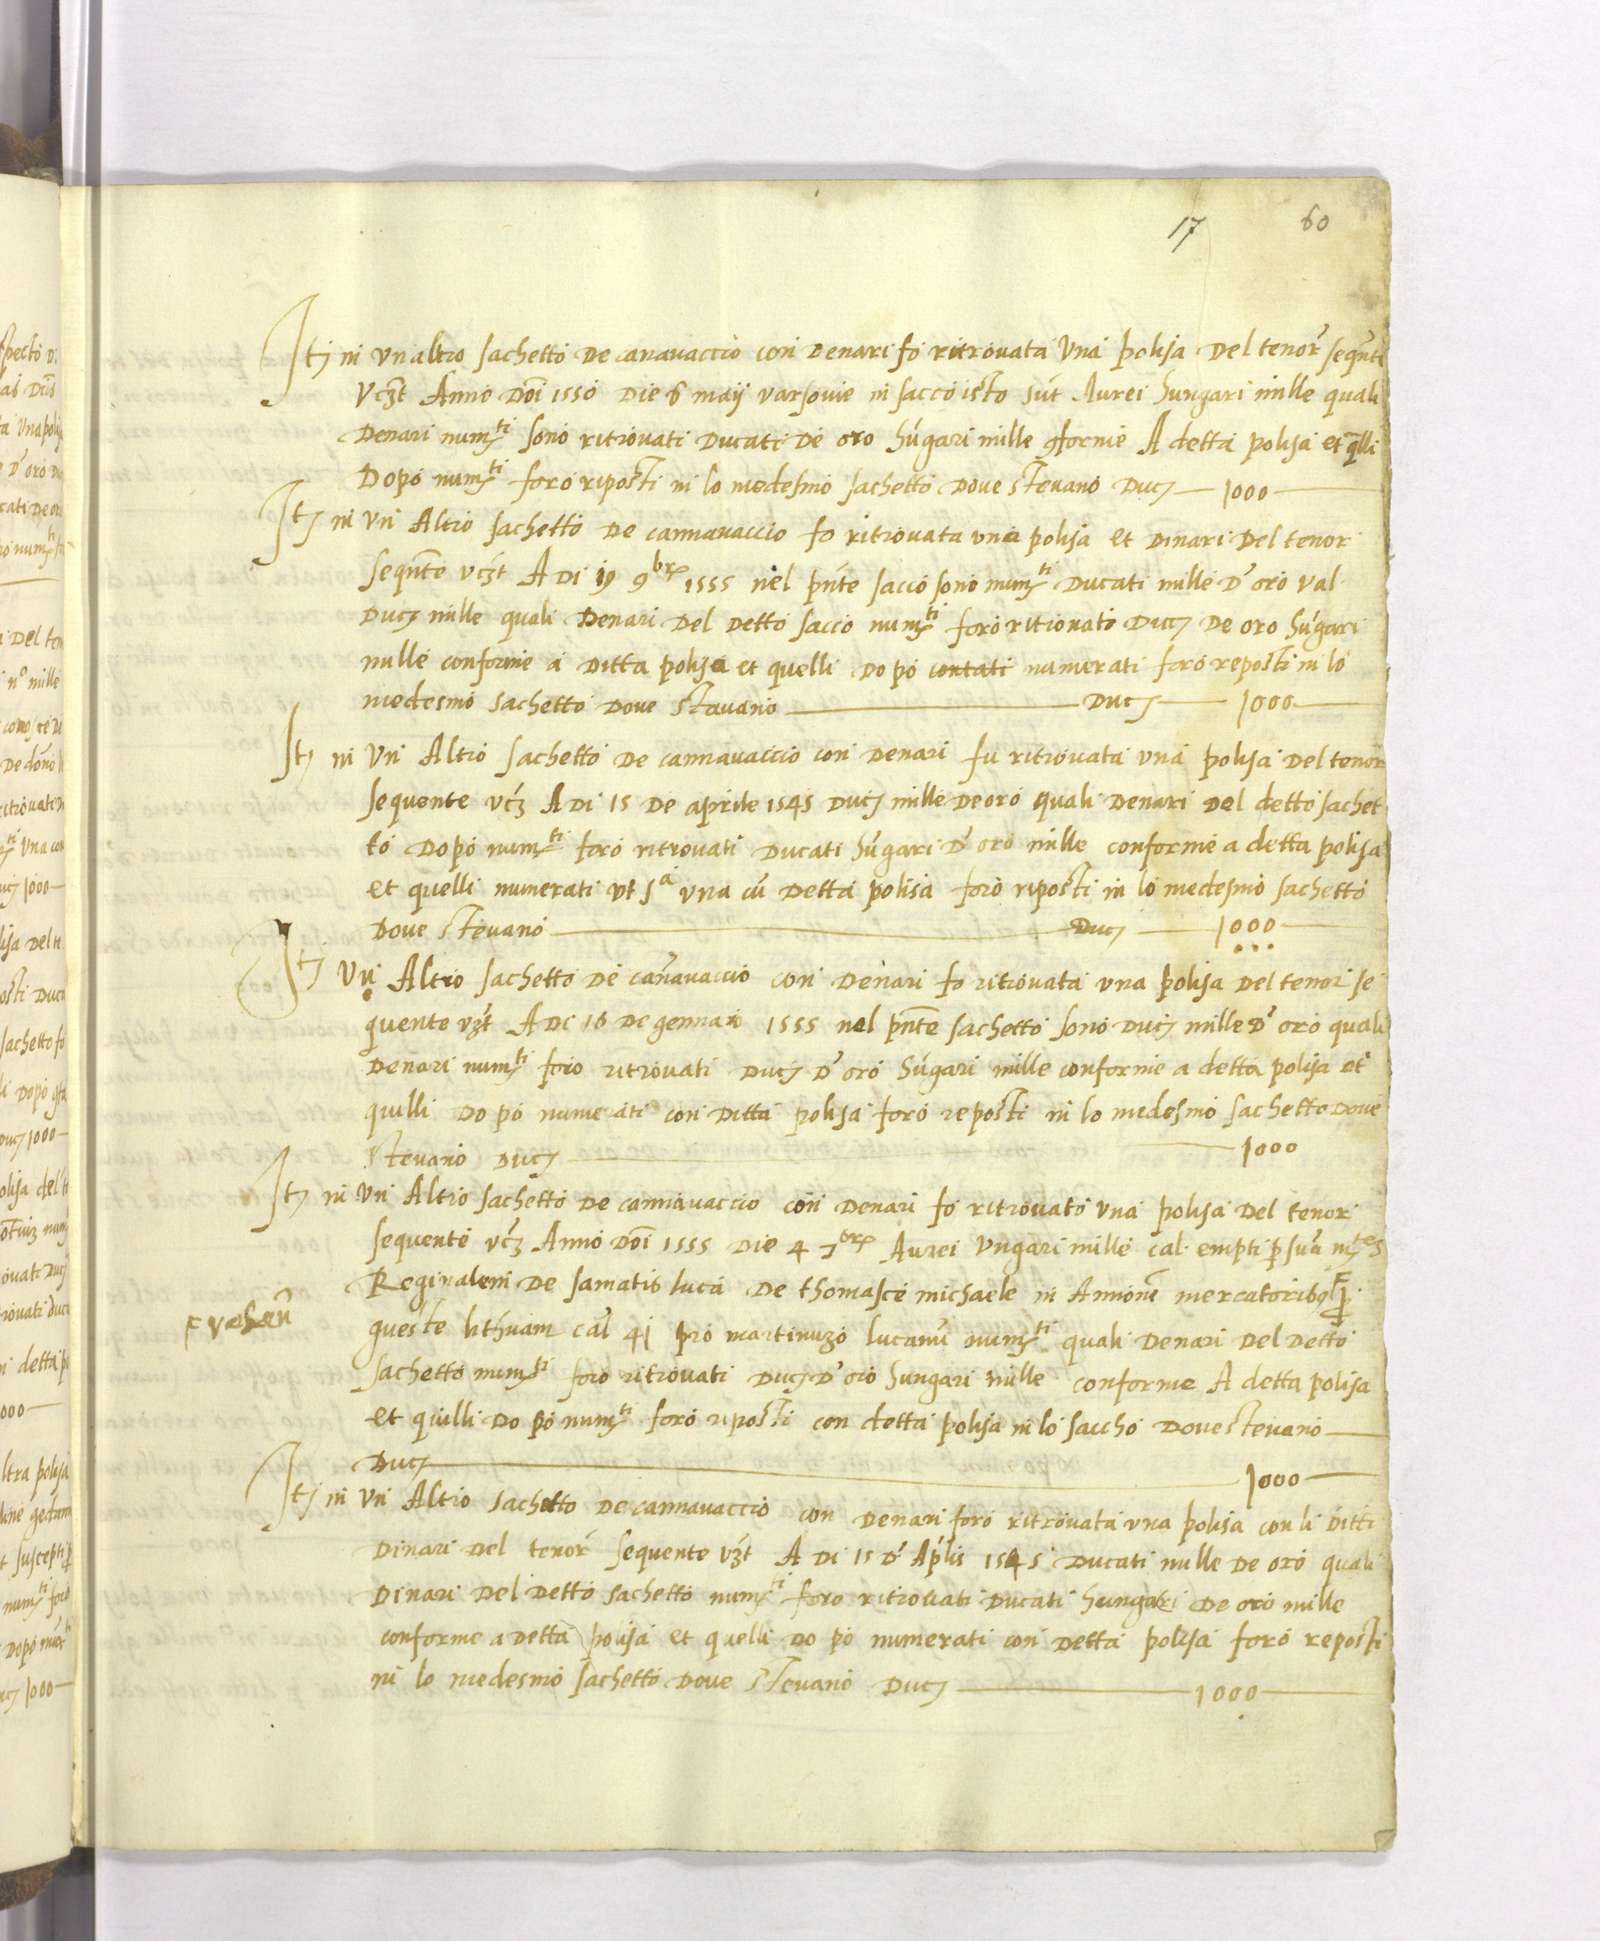 17 60
Itʒ in Vn altro sachetto de canavaccio con denari fo ritrovata Vna polisa del tenor seqnte
Vczt Anno Doi 1550 die 6 maij varsovie in sacco isto sut Aurei hungari mille quali
denari numti sono ritrovati ducati de oro hugari mille cforme A detta polisa et qlli
Dopo numti foro riposti in lo medesmo sachetto dove stevano Ducʒ — 1000 —
Itʒ in Vn Altro sachetto de cannavaccio fo ritrovata vna polisa et dinari del tenor
seqnte vczt A di 19 9bre 1555 nel pnte sacco sono numti ducati mille d'oro val
Ducʒ mille quali Denari del detto sacco numti foro ritrovati Ducʒ de oro hugari
mille conforme a ditta poliza et quelli do po contati numerati foro reposti in lo
medesmo sachetto dove stavano — Ducʒ — 1000 —
Itʒ in Vn Altro sachetto de cannavaccio con denari fu ritrovata vna polisa del tenor
sequente vcʒ A di 15 de aprile 1545 Ducʒ mille de oro quali denari del detto sachet
to dopo numti foro ritrovati ducati hugari d'oro mille conforme a detta polisa
et quelli numerati vt sa vna cu detta polisa foro riposti in lo medesmo sachetto
dove stevano — Ducʒ — 1000 —
Itʒ Vn Altro sachetto de canavaccio con denari fo ritrovata vna polisa del tenor se
quente vzt A di 16 de gennaro 1555 nel pnte sachetto sono Ducʒ mille d'oro quali
denari numti foro ritrovati Ducʒ d'oro hugari mille conforme a detta polisa et
quilli do po numerati con ditta polisa foro reposti in lo medesmo sachetto dove
stevano Ducʒ — 1000
Itʒ in Vn Altro sachetto de cannavaccio con denari fo ritrovato vna polisa del tenor
sequente vcʒ Anno Doi 1555 die 4 7bre Aurei Vngari mille cal empti p sua mtes
Reginalem de samatis luca de thomasce michaele in Annone mercatoribq
F vehen
gueste lithuam cal 41 pro martinuzo lucanu numti quali denari del detto
sachetto numti foro ritrovati Ducʒ d'oro hungari mille conforme A detta polisa
et quilli do po numti foro riposti con detta polisa in lo saccho dove stevano —
Ducʒ — 1000 —
Itʒ in Vn Altro sachetto de cannavaccio con denari foro ritrovata vna polisa con li ditti
dinari del tenor sequente vzt A di 15 d' Aplis 1545 ducati mille de oro quali
dinari del detto sachetto numti foro ritrovati ducati hungari de oro mille
conforme a detta polisa et quelli do po numerati con detta polisa foro reposti
in lo medesmo sachetto dove stevano Ducʒ — 1000 —